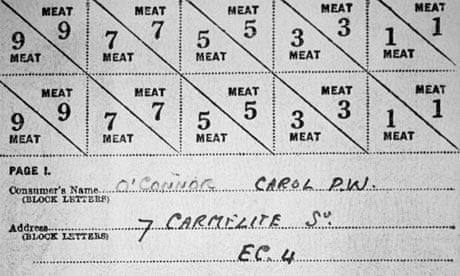 MEAT MEAT MEAT MEAT MEAT
9 9 7 7 5 5 3 3 1 1
MEAT MEAT MEAT MEAT MEAT
MEAT MEAT MEAT MEAT MEAT
9 9 7 7 5 5 3 3 1 1
MEAT MEAT MEAT MEAT MEAT
PAGE 1.
Consumer's Name O'CONNOR CAROL P.W.
(BLOCK LETTERS)
Address 7 CARMELITE St.
(BLOCK LETTERS)
EC. 4